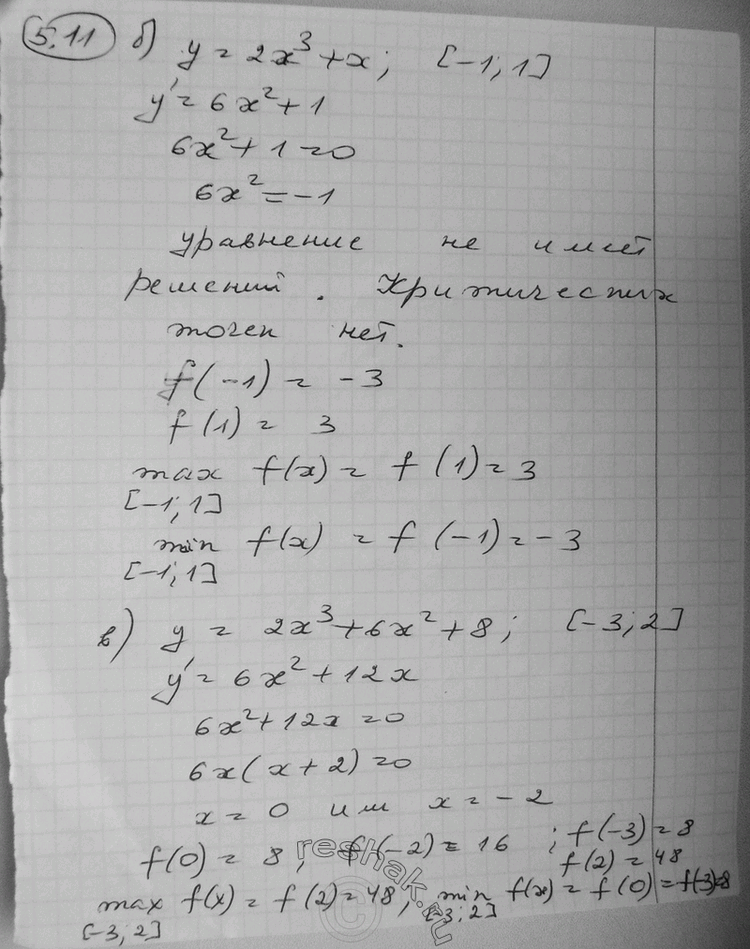 5.11 б) y = 2x³ + x; [-1; 1]
y' = 6x² + 1
6x² + 1 = 0
6x² = -1
уравнение не имеет
решений. Критических
точек нет.
f(-1) = -3
f(1) = 3
max f(x) = f(1) = 3
[-1; 1]
min f(x) = f(-1) = -3
[-1; 1]
в) y = 2x³ + 6x² + 8; [-3; 2]
y' = 6x² + 12x
6x² + 12x = 0
6x(x + 2) = 0
x = 0 или x = -2
f(0) = 8; f(-2) = 16; f(-3) = 8
f(2) = 48
max f(x) = f(2) = 48, min f(x) = f(0) = f(-3) = 8
[-3; 2] [-3; 2]
reshak.ru
©